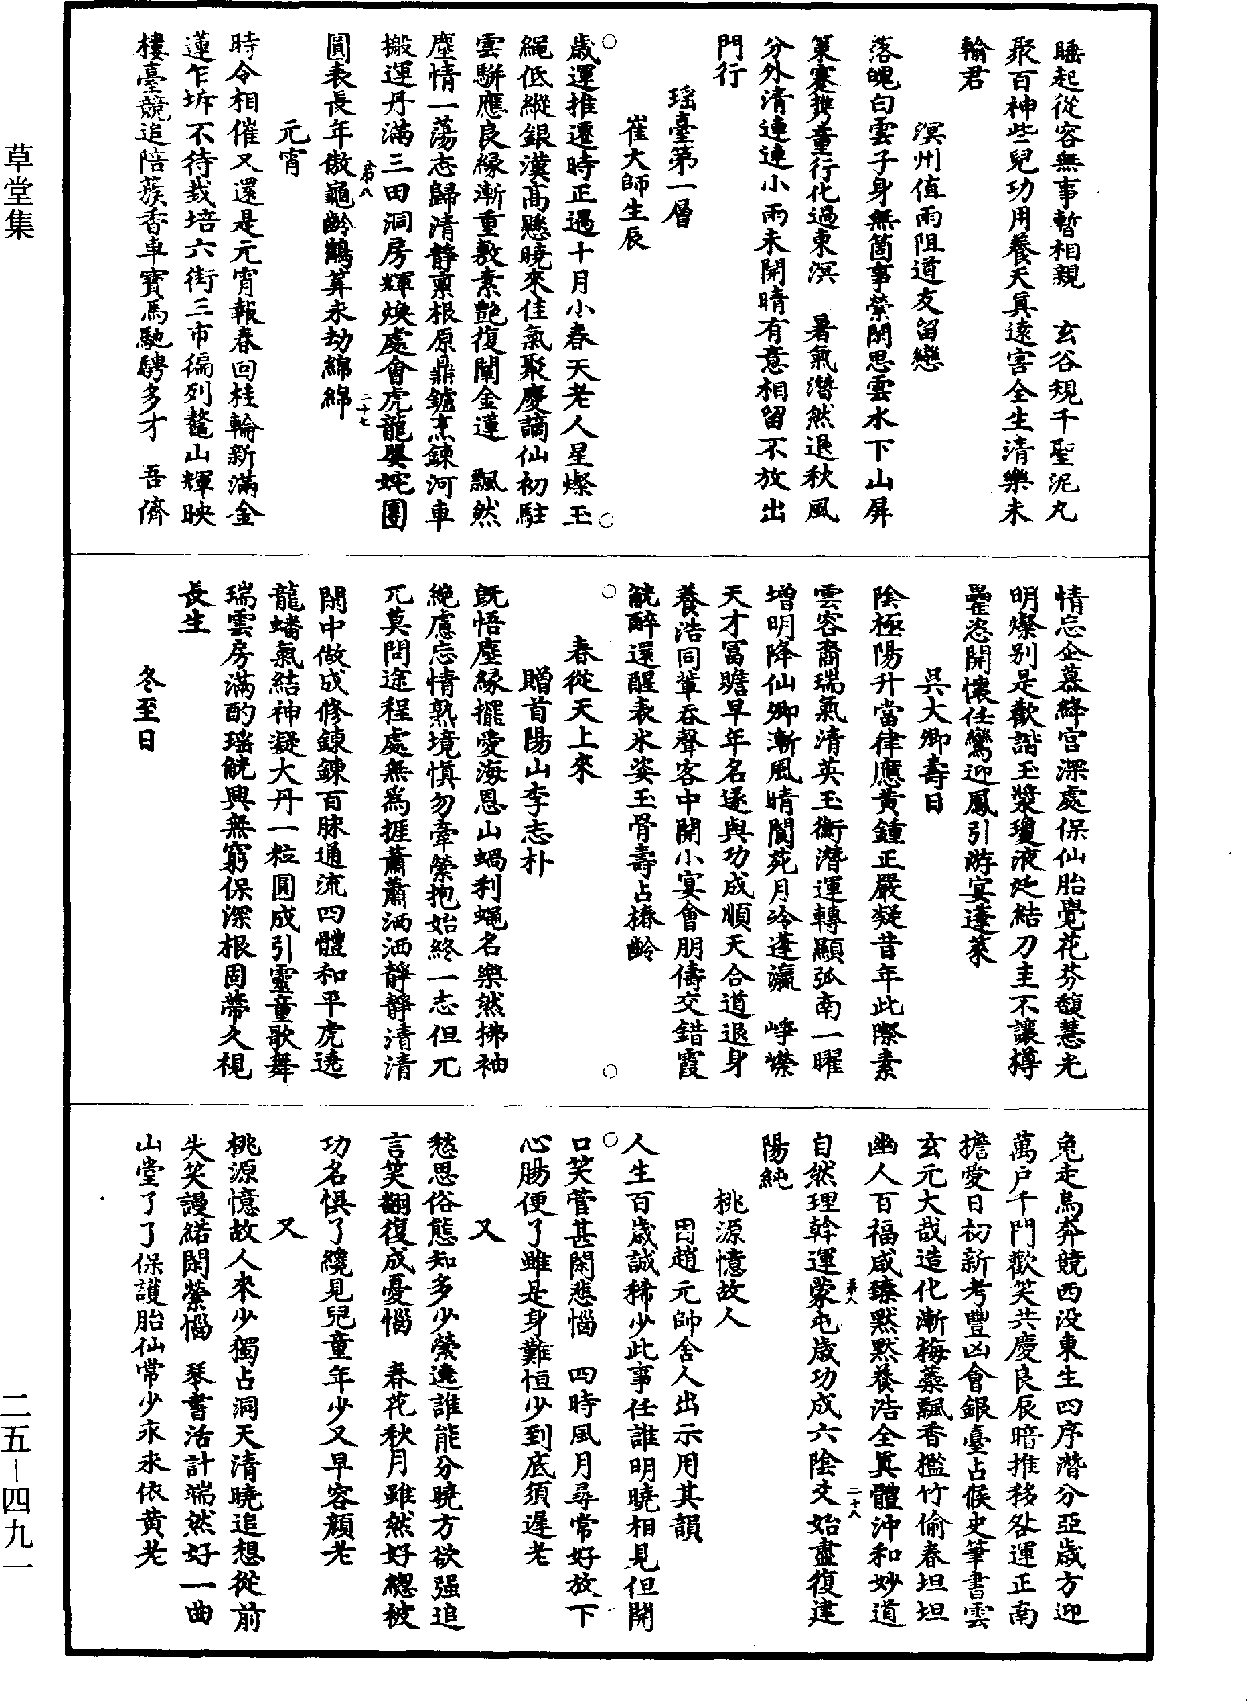 睡起從容無事暫相親　玄谷規千聖泥丸
聚百神些兒功用養天真遠害全生清樂未
輸君
溟州值雨阻道友留戀
落魄白雲子身無箇事縈閑思雲水下山屏
策蹇携童行化過東溟　暑氣潛然退秋風
分外清連連小雨未開晴有意相留不放出
門行
瑤臺第一層
崔大師生辰
歲運推遷時正遇十月小春天老人星燦玉
繩低縱銀漢高懸曉來佳氣聚慶謫仙初駐
雲駢應良緣漸重敷素艷復闡金蓮　飄然
塵情一蕩志歸清靜稟根原鼎鑪烹鍊河車
搬運丹滿三田洞房輝煥處會虎龍嬰姹團
圓表長年傲龜齡鶴筭永劫綿綿
元宵
時令相催又還是元宵報春回桂輪新滿金
蓮乍坼不待栽培六街三市徧列鼇山輝映
樓臺競追陪蔟香車寶馬馳騁多才　吾儕
情忘企慕絳宮深處保仙胎覺花芬馥慧光
明燦別是歡諧玉漿瓊液延結刀圭不讓罇
罍恣開懷任鸞迎鳳引游宴蓬萊
吳大卿壽日
陰極陽升當律應黃鍾正嚴凝昔年此際素
雲容裔瑞氣清英玉衡潛運轉顯弧南一曜
增明降仙卿漸風晴閬苑月冷蓬瀛　崢嶸
天才富贍早年名遂與功成順天合道退身
養浩同輩吞聲客中開小宴會朋儔交錯霞
觥醉還醒表氷姿玉骨壽占椿齡
春從天上來
贈首陽山李志朴
旣悟塵緣擺愛海恩山蝸利蠅名樂然拂袖
絶慮忘情熟境慎勿牽縈抱始終一志但兀
兀莫問途程處無爲捱蕭蕭洒洒靜靜清清
閑中做成修鍊鍊百脉通流四體和平虎遶
龍蟠氣結神凝大丹一粒圓成引靈童歌舞
瑞雲房滿酌瑤觥興無窮保深根固蔕久視
長生
冬至日
兔走烏奔競西没東生四序潛分亞歲方迎
萬户千門歡笑共慶良辰暗推移咎運正南
擔愛日初新考豐凶會銀臺占候史筆書雲
玄元大哉造化漸梅蘂飄香檻竹偷春坦坦
幽人百福咸臻黙黙養浩全真體沖和妙道
自然理斡運蒙屯歲功成六陰爻始盡復建
陽純
桃源憶故人
因趙元帥舍人出示用其韻
人生百歲誠稀少此事任誰明曉相見但開
口笑管甚閑悲惱　四時風月尋常好放下
心腸便了雖是身難恒少到底須遲老
又
愁思俗態知多少縈遶誰能分曉方欲强追
言笑翻復成憂惱　春花秋月雖然好緫被
功名悞了纔見兒童年少又早容顔老
又
桃源憶故人來少獨占洞天清曉追想從前
失笑謾緒閑縈惱　琴書活計端然好一曲
山堂了了保護胎仙常少永永依黄老
草堂集
二五－四九一